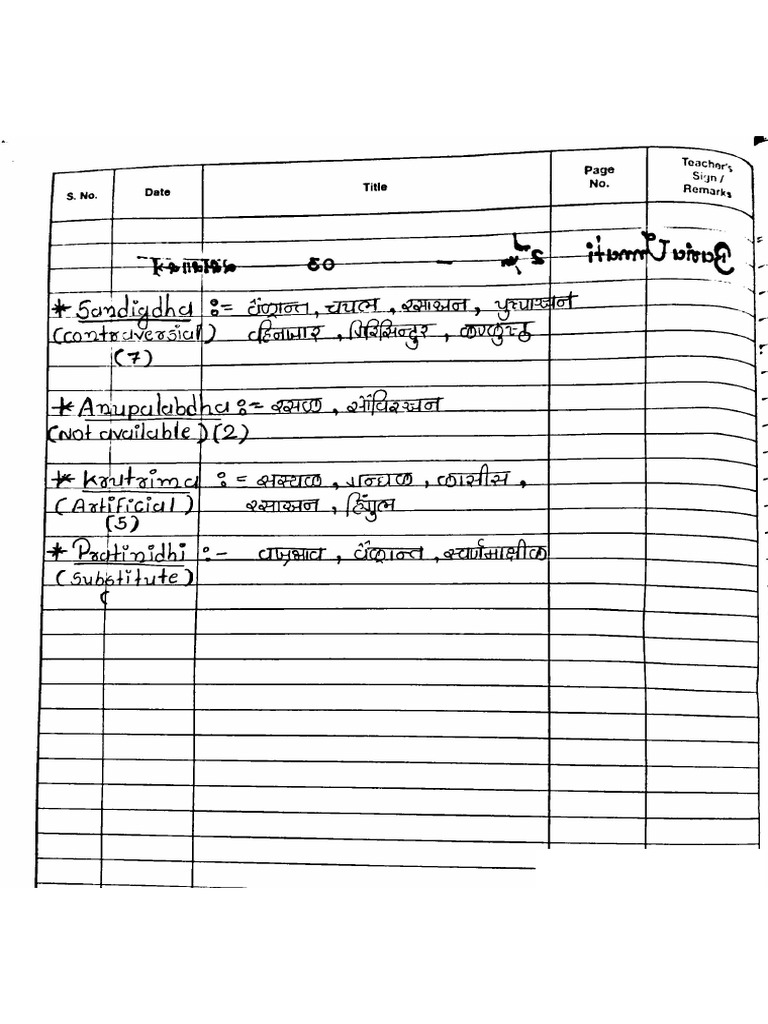 S. No. Date Title Page No. Teacher's Sign / Remarks
Baria Unnati
* Sandigdha := वैक्रान्त, चपल, रसाञ्जन, पुष्पाञ्जन
(Contraversial) वहिनजार, गिरिसिन्दुर, कंकुष्ठ
(7)
* Anupalabdha := रसक, सौविरञ्जन
(Not available) (2)
* Krutrima := सस्यक, गन्धक, कासीस,
(Artificial) रसाञ्जन, हिंगुल
(5)
* Pratinidhi :- वैक्रान्त, स्वर्णमाक्षीक
(Substitute)